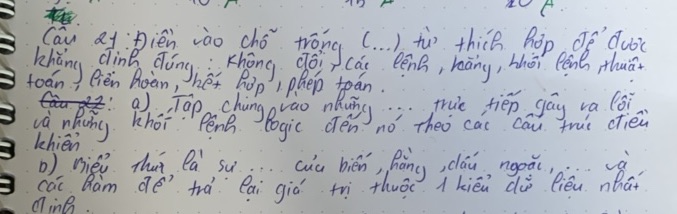 Câu 21: Điền vào chỗ trống (...) từ thích hợp để được
khẳng định đúng: không đổi, các lệnh, hằng, khối lệnh, thuật
toán, liên hoàn, kết hợp, phép toán.
a) Tập chung vào những ... trực tiếp gây ra lỗi
và những khối lệnh logic đến nó theo các cấu trúc điều
khiển
b) Biểu thức là sự .... của biến, hằng, dấu ngoặc, .... và
các hàm để trả lại giá trị thuộc 1 kiểu dữ liệu nhất
định.